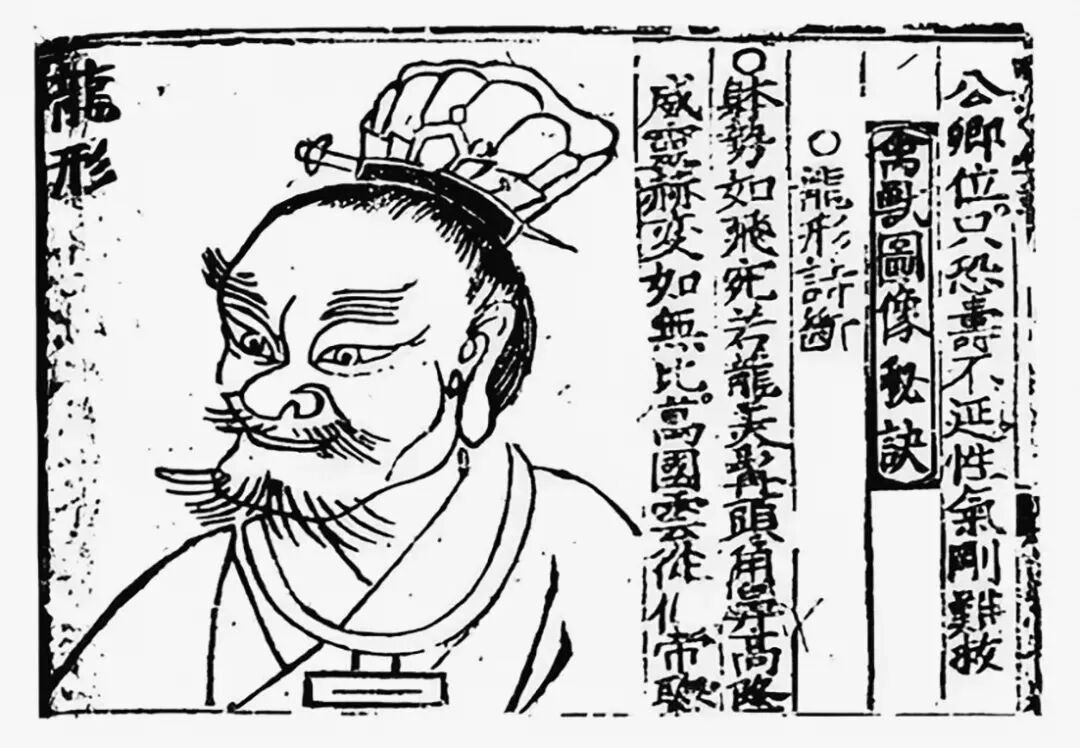 公卿位只恐壽不延性氣剛難救
禽獸圖像秘訣
○龍形訣斷
○躰勢如飛宛若龍美髯頭角鼻高隆
威靈赫奕如無比萬國雲從仕帝聰
龍形